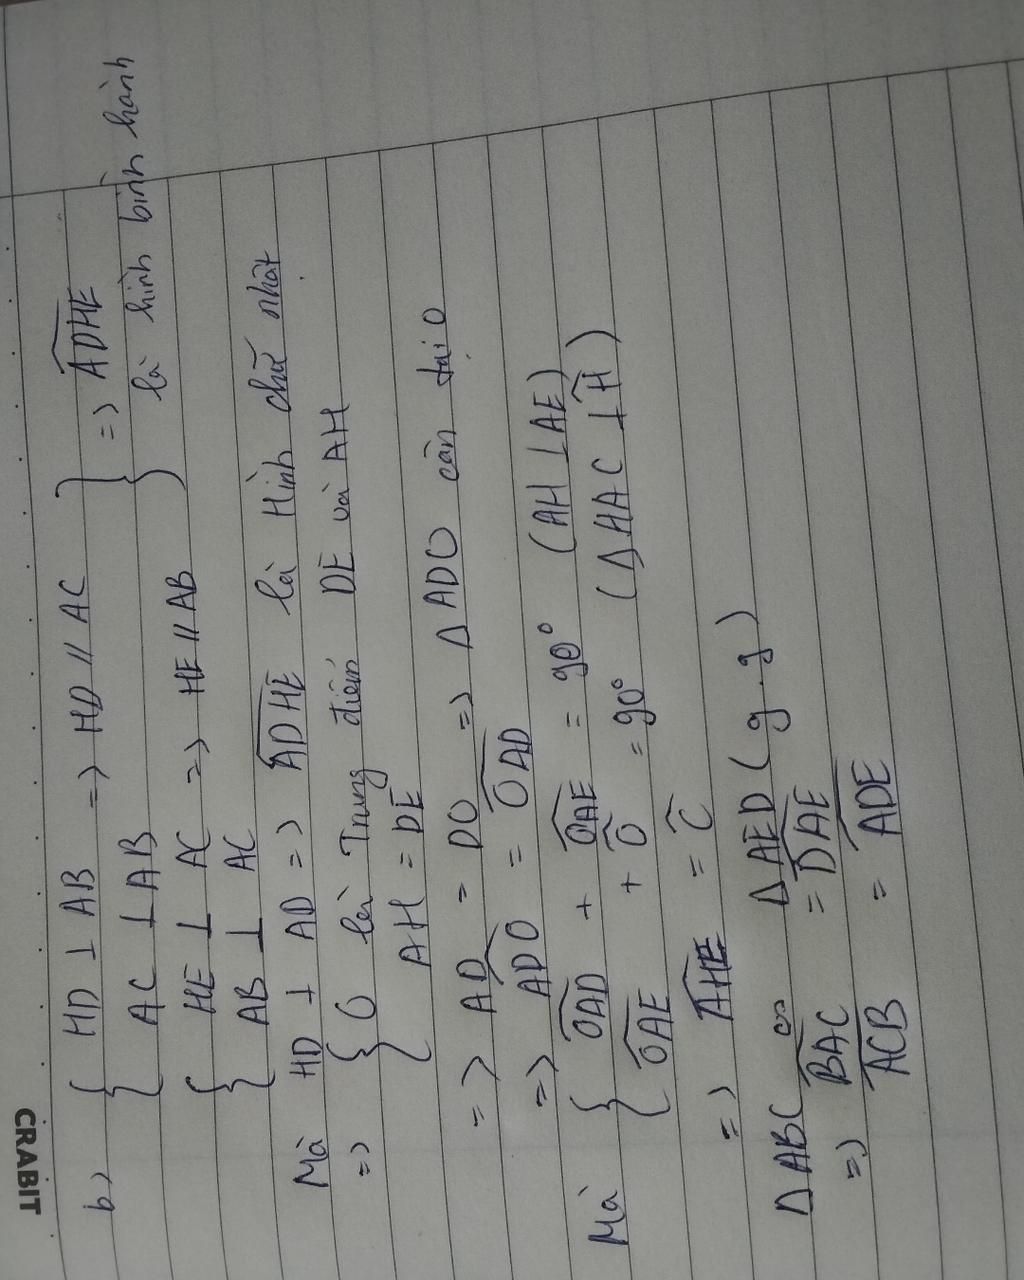 CRABIT
b) { HD ⊥ AB => HD // AC } => \widehat{ADHE}
AC ⊥ AB là hình bình hành
{ HE ⊥ AC => HE // AB
AB ⊥ AC
Mà HD ⊥ AD => \widehat{ADHE} là Hình chữ nhật
=> { O là Trung điểm DE và AH
AH = DE
=> AD = DO => Δ ADO cân tại O
=> \widehat{ADO} = \widehat{OAD}
Mà { \widehat{OAD} + \widehat{OAE} = 90° (AH ⊥ AE)
\widehat{OAE} + \widehat{O} = 90° (Δ HAC ⊥ \widehat{H})
=> \widehat{AHE} = \widehat{C}
Δ ABC ∽ Δ AED (g.g)
=> \widehat{BAC} = \widehat{DAE}
\widehat{ACB} = \widehat{ADE}